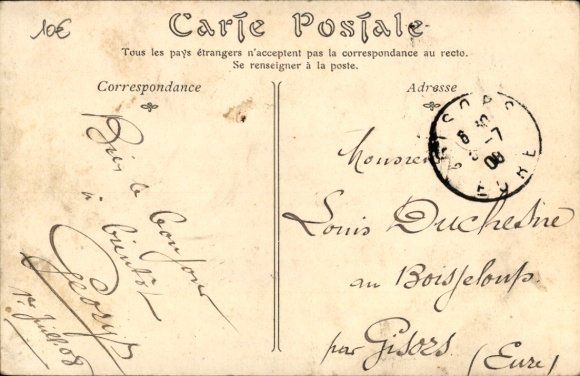 10€
Carte Postale
Tous les pays étrangers n'acceptent pas la correspondance au recto.
Se renseigner à la poste.
Correspondance
Adresse
Bien le bonjour
à bientôt
Georges
1er Juillet 08
GISORS
8
-7
08
EURE
Monsieur
Louis Duchesne
au Boisgeloup.
par Gisors (Eure)